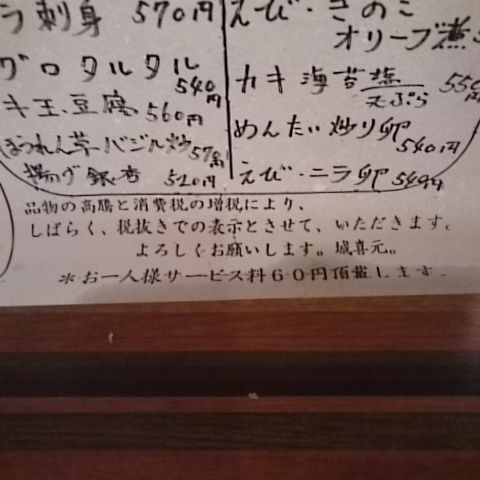 ラ刺身 570円
グロタルタル 540円
キ玉豆腐 560円
ほうれん草バジル炒 570円
揚げ銀杏 520円
えび・きのこ
オリーブ煮
カキ海苔塩 天ぷら 550円
めんたい炒り卵 540円
えび・ニラ卵 540円
品物の高騰と消費税の増税により、
しばらく、税抜きでの表示とさせて、いただきます。
よろしくお願いします。城喜元。
＊お一人様サービス料60円頂戴します。